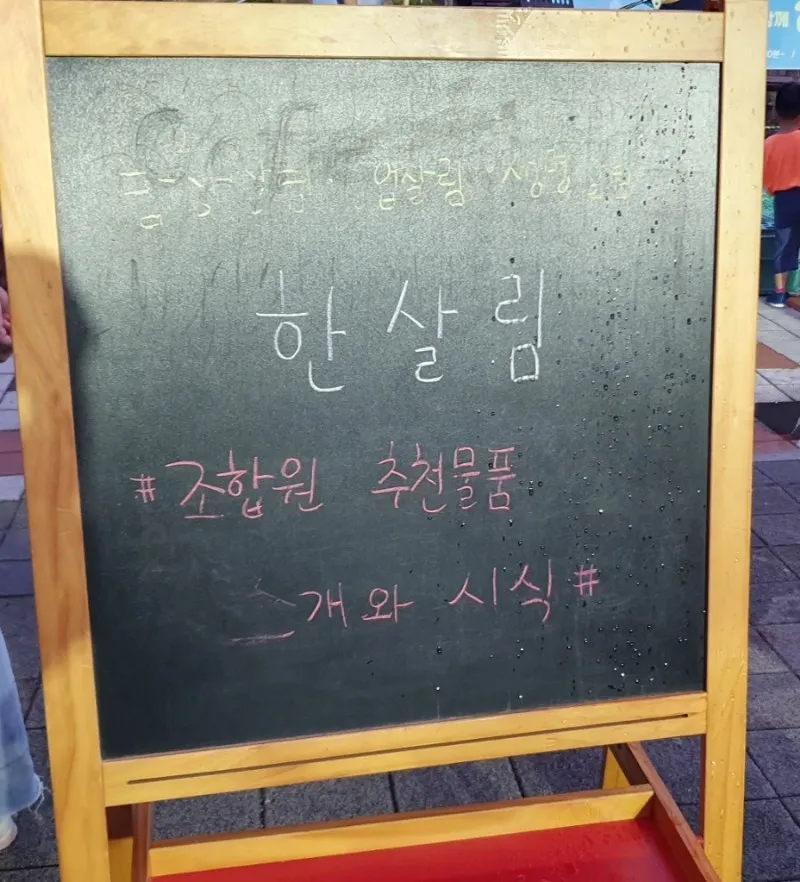 업살림 · 생명
한살림
#조합원 추천물품
소개와 시식#